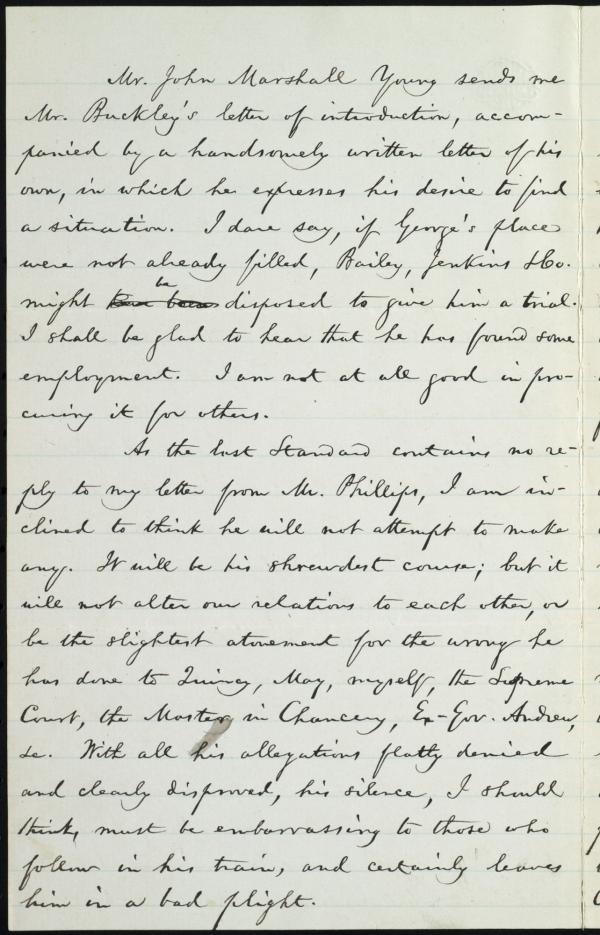 Mr. John Marshall Young sends me
Mr. Buckley's letter of introduction, accom-
panied by a handsomely written letter of his
own, in which he expresses his desire to find
a situation. I dare say, if George's place
were not already filled, Bailey, Jenkins &Co.
might have been be disposed to give him a trial.
I shall be glad to hear that he has found some
employment. I am not at all good in pro-
curing it for others.
As the last Standard contains no re-
ply to my letter from Mr. Phillips, I am in-
clined to think he will not attempt to make
any. It will be his shrewdest course; but it
will not alter our relations to each other, or
be the slightest atonement for the wrong he
has done to Quincy, May, myself, the Supreme
Court, the Master in Chancery, Ex-Gov. Andrew,
&c. With all his allegations flatly denied
and clearly disproved, his silence, I should
think, must be embarrassing to those who
follow in his train, and certainly leaves
him in a bad plight.